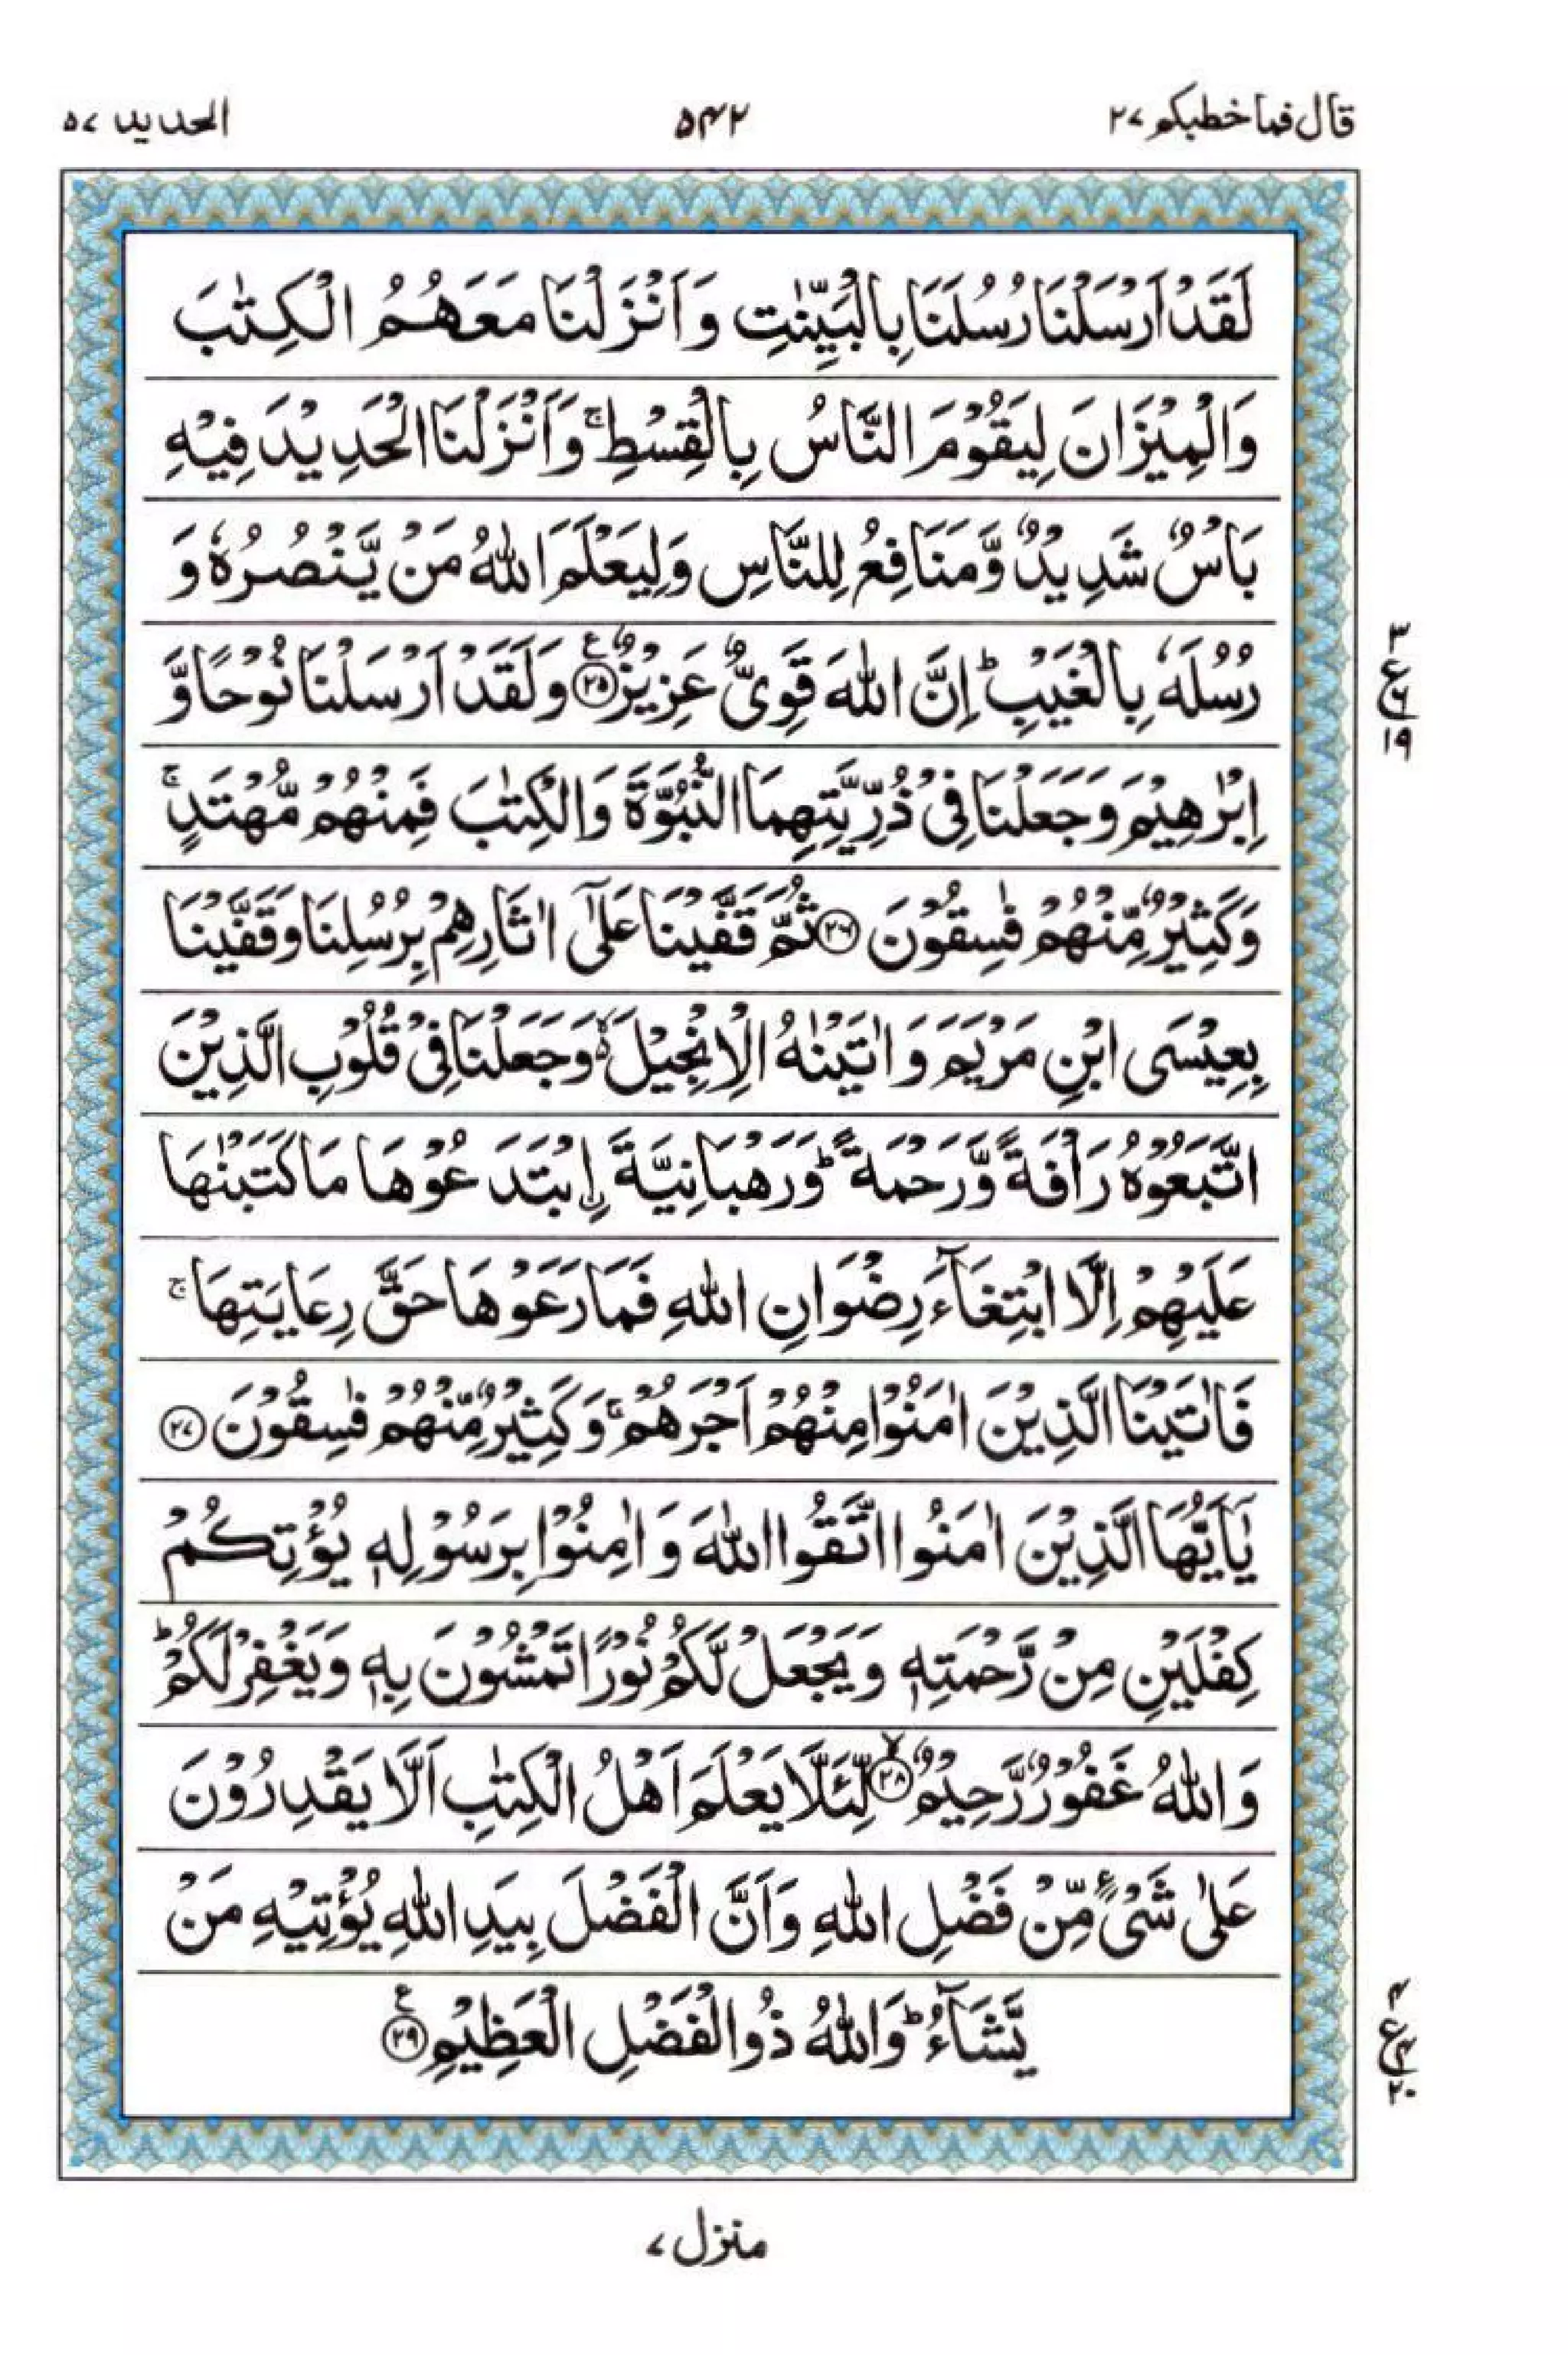 قال فما خطبكم ۲۷
۵۴۲
الحديد ۵۷
لَقَدْ اَرْسَلْنَا رُسُلَنَا بِالْبَيِّنٰتِ وَاَنْزَلْنَا مَعَهُمُ الْكِتٰبَ
وَالْمِيْزَانَ لِيَقُوْمَ النَّاسُ بِالْقِسْطِ ۚ وَاَنْزَلْنَا الْحَدِيْدَ فِيْهِ
بَاْسٌ شَدِيْدٌ وَّمَنَافِعُ لِلنَّاسِ وَلِيَعْلَمَ اللّٰهُ مَنْ يَّنْصُرُهٗ وَ
رُسُلَهٗ بِالْغَيْبِ ؕ اِنَّ اللّٰهَ قَوِيٌّ عَزِيْزٌ ﴿۲۵﴾ ع وَلَقَدْ اَرْسَلْنَا نُوْحًا وَّ
۳
ع
۶
۱۹
اِبْرٰهِيْمَ وَجَعَلْنَا فِيْ ذُرِّيَّتِهِمَا النُّبُوَّةَ وَالْكِتٰبَ فَمِنْهُمْ مُّهْتَدٍ ۚ
وَكَثِيْرٌ مِّنْهُمْ فٰسِقُوْنَ ﴿۲۶﴾ ثُمَّ قَفَّيْنَا عَلٰٓى اٰثَارِهِمْ بِرُسُلِنَا وَقَفَّيْنَا
بِعِيْسَى ابْنِ مَرْيَمَ وَاٰتَيْنٰهُ الْاِنْجِيْلَ ۙ۬ وَجَعَلْنَا فِيْ قُلُوْبِ الَّذِيْنَ
اتَّبَعُوْهُ رَاْفَةً وَّرَحْمَةً ؕ وَرَهْبَانِيَّةَ اۨبْتَدَعُوْهَا مَا كَتَبْنٰهَا
عَلَيْهِمْ اِلَّا ابْتِغَآءَ رِضْوَانِ اللّٰهِ فَمَا رَعَوْهَا حَقَّ رِعَايَتِهَا ۚ
فَاٰتَيْنَا الَّذِيْنَ اٰمَنُوْا مِنْهُمْ اَجْرَهُمْ ۚ وَكَثِيْرٌ مِّنْهُمْ فٰسِقُوْنَ ﴿۲۷﴾
يٰۤاَيُّهَا الَّذِيْنَ اٰمَنُوا اتَّقُوا اللّٰهَ وَاٰمِنُوْا بِرَسُوْلِهٖ يُؤْتِكُمْ
كِفْلَيْنِ مِنْ رَّحْمَتِهٖ وَيَجْعَلْ لَّكُمْ نُوْرًا تَمْشُوْنَ بِهٖ وَيَغْفِرْ لَكُمْ ؕ
وَاللّٰهُ غَفُوْرٌ رَّحِيْمٌ ﴿۲۸﴾ ۙ لِّئَلَّا يَعْلَمَ اَهْلُ الْكِتٰبِ اَلَّا يَقْدِرُوْنَ
عَلٰى شَيْءٍ مِّنْ فَضْلِ اللّٰهِ وَاَنَّ الْفَضْلَ بِيَدِ اللّٰهِ يُؤْتِيْهِ مَنْ
يَّشَآءُ ؕ وَاللّٰهُ ذُو الْفَضْلِ الْعَظِيْمِ ﴿۲۹﴾ ع
۴
ع
۴
۲۰
منزل ۷